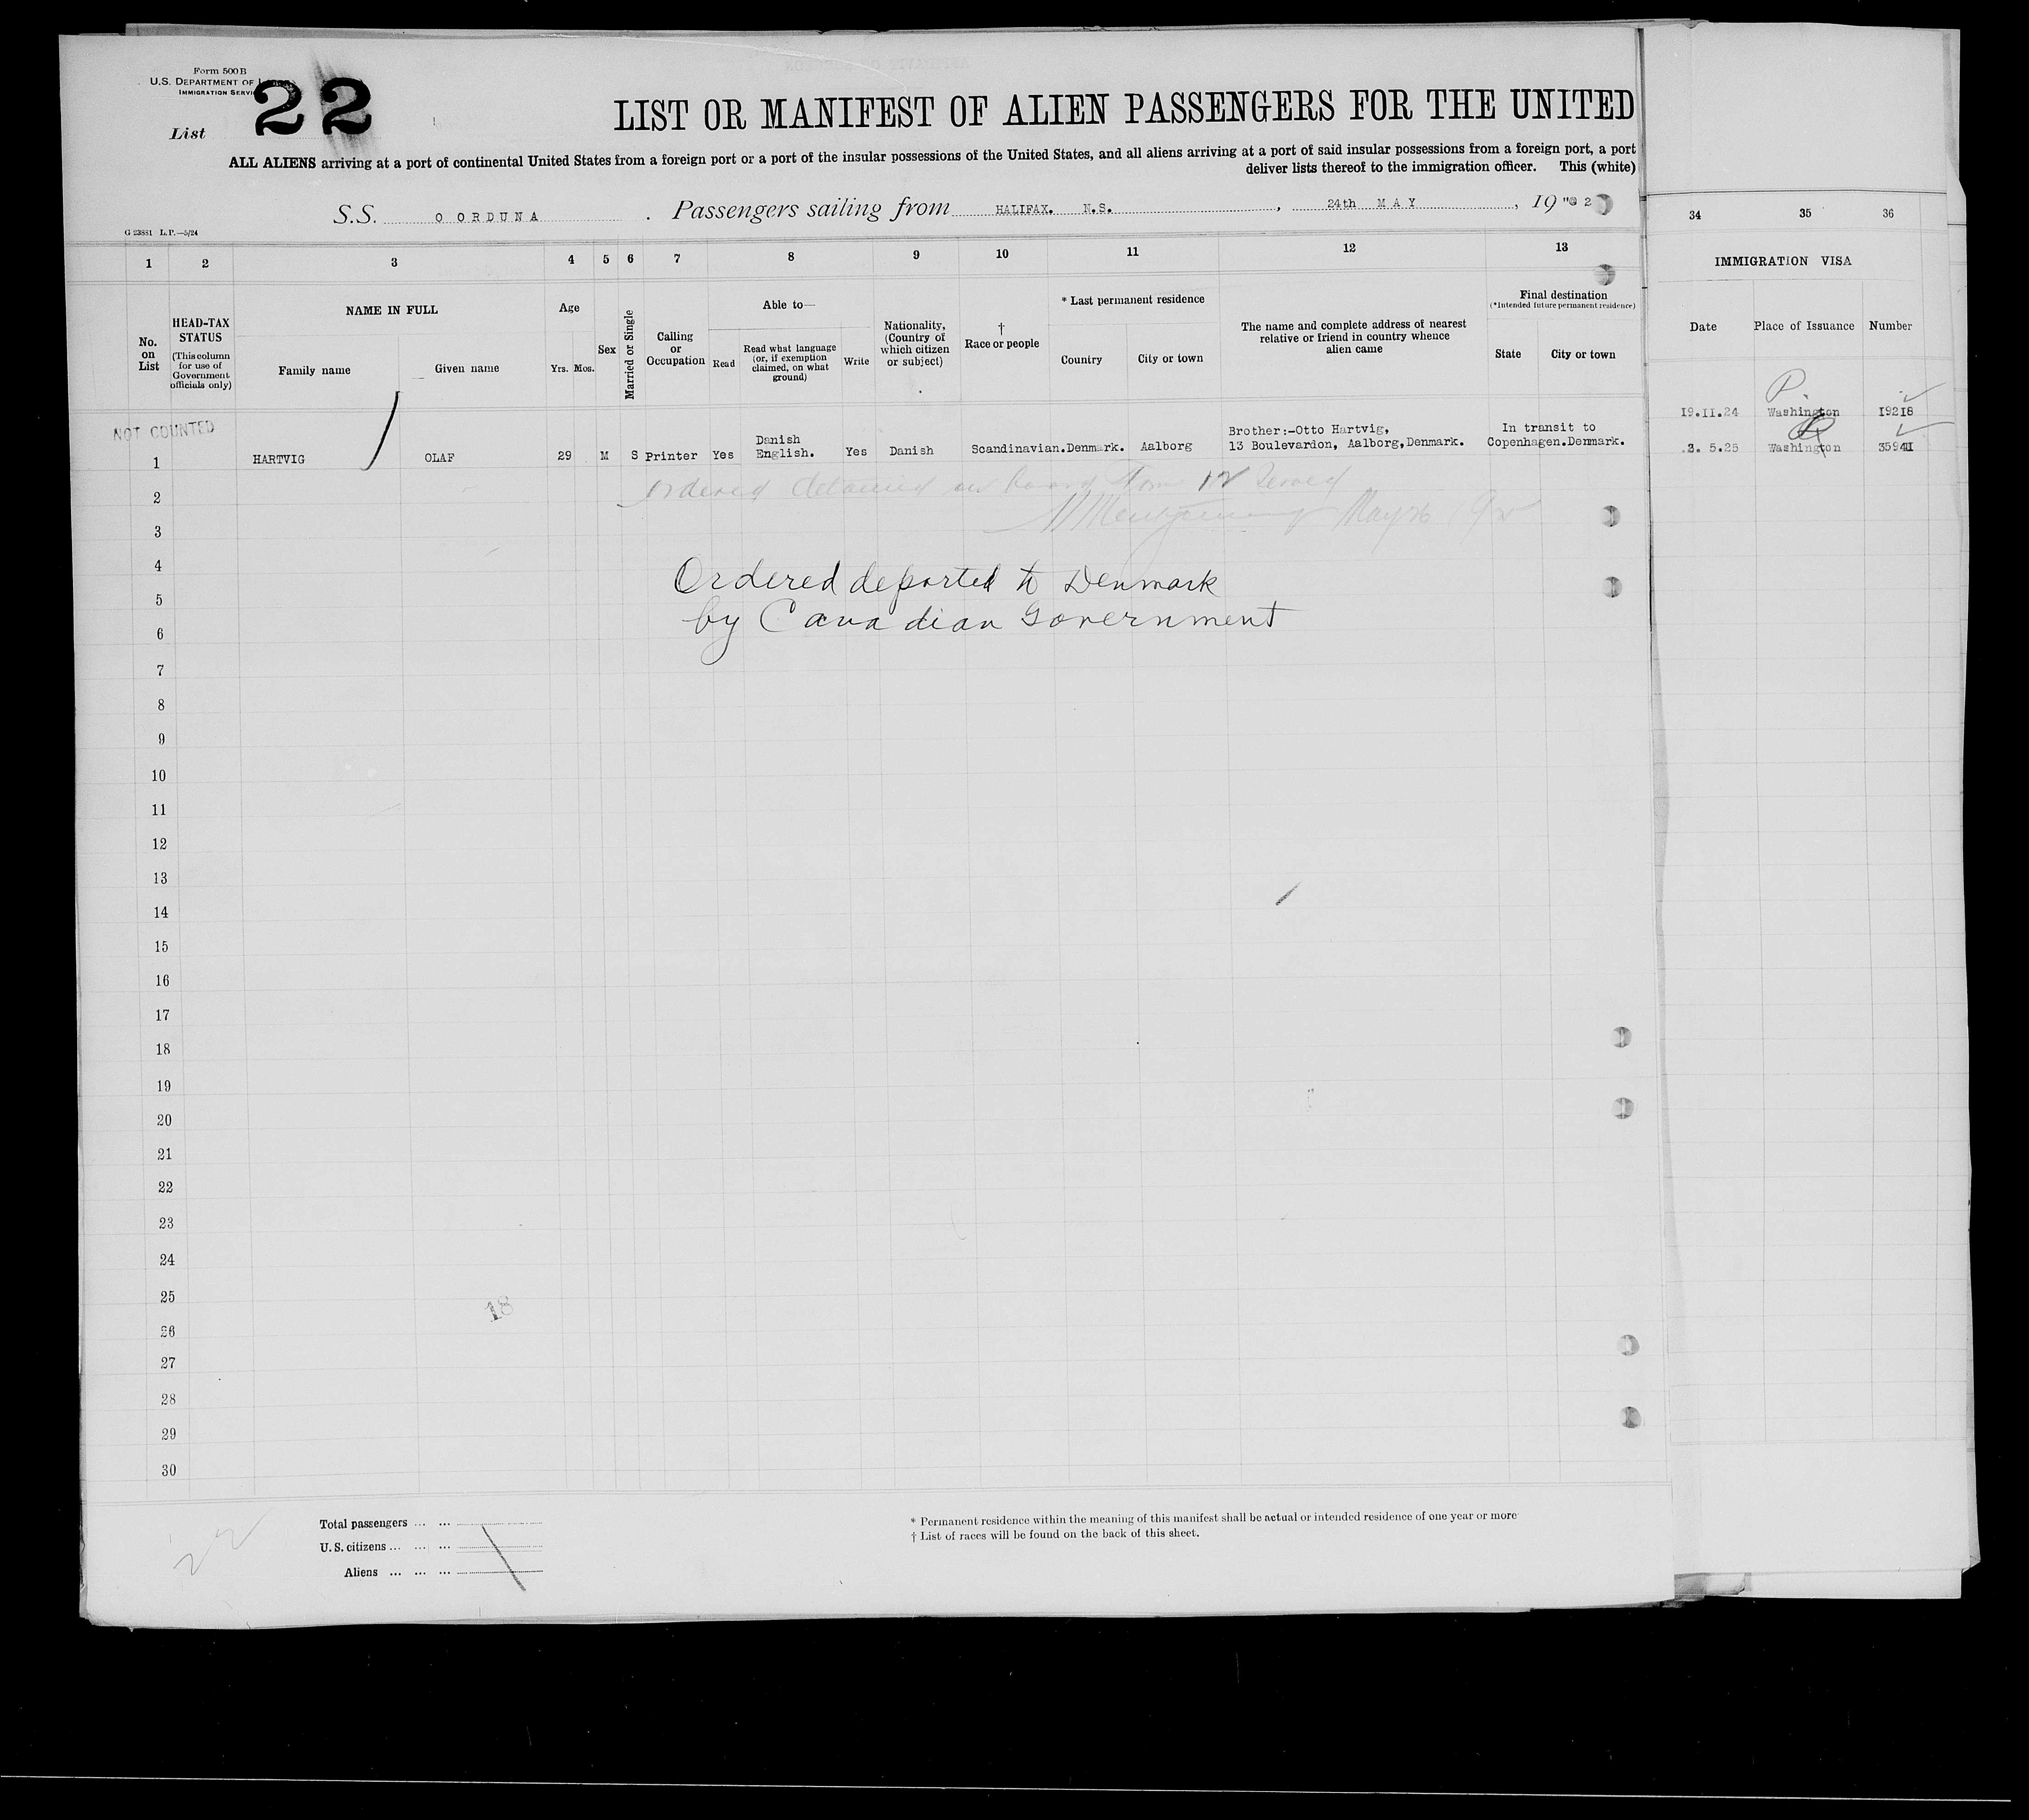 Form 500 B
U.S. DEPARTMENT OF
IMMIGRATION SERVI
List 22
LIST OR MANIFEST OF ALIEN PASSENGERS FOR THE UNITED
ALL ALIENS arriving at a port of continental United States from a foreign port or a port of the insular possessions of the United States, and all aliens arriving at a port of said insular possessions from a foreign port, a port
deliver lists thereof to the immigration officer. This (white)
S.S. O ORDUNA . Passengers sailing from HALIFAX. N.S. , 24th MAY , 19 2
G 23881 L.P.—5/24
1 2 3 4 5 6 7 8 9 10 11 12 13
34 35 36
IMMIGRATION VISA
Date Place of Issuance Number
No. on List
HEAD-TAX STATUS (This column for use of Government officials only)
NAME IN FULL
Family name Given name
Age
Yrs. Mos.
Sex
Married or Single
Calling or Occupation
Able to—
Read
Read what language (or, if exemption claimed, on what ground)
Write
Nationality, (Country of which citizen or subject)
† Race or people
* Last permanent residence
Country City or town
The name and complete address of nearest relative or friend in country whence alien came
Final destination
(*Intended future permanent residence)
State City or town
P.
19.11.24 Washington 19218
NOT COUNTED
1 HARTVIG OLAF 29 M S Printer Yes Danish English. Yes Danish Scandinavian. Denmark. Aalborg Brother:-Otto Hartvig, 13 Boulevardon, Aalborg, Denmark. In transit to Copenhagen. Denmark.
2. 5.25 Washington
2 ordered detained on board served
3 Montgomery May 26
4 Ordered deported to Denmark
5 by Canadian Government
6
7
8
9
10
11
12
13
14
15
16
17
18
19
20
21
22
23
24
25
18
26
27
28
29
30
22
Total passengers ... ...
U. S. citizens ... ... ...
Aliens ... ... ...
* Permanent residence within the meaning of this manifest shall be actual or intended residence of one year or more
† List of races will be found on the back of this sheet.